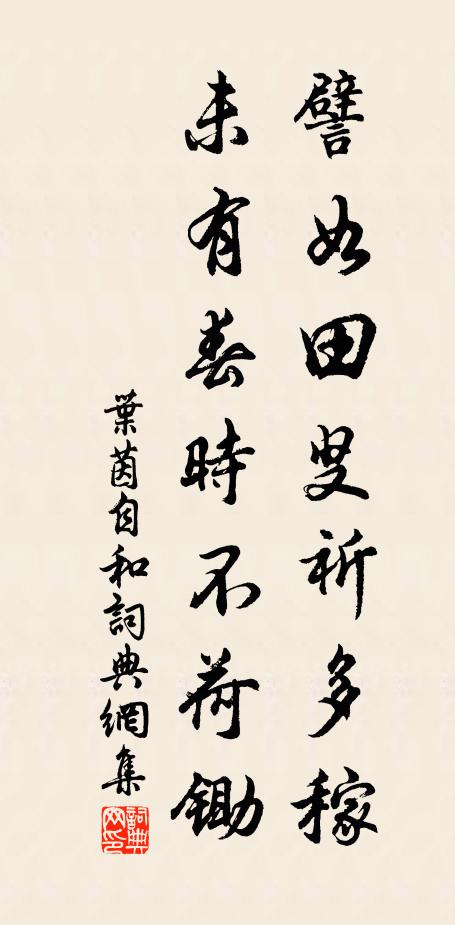 譬如田叟祈多稼
未有春時不荷鋤
葉茵自和詞典網集
詞典网印